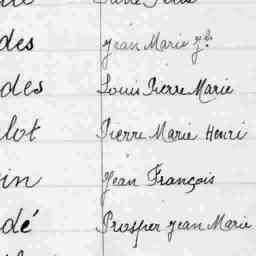 des Jean Marie
des Louis Pierre Marie
lot Pierre Marie Henri
in Jean François
dé Prosper Jean Marie